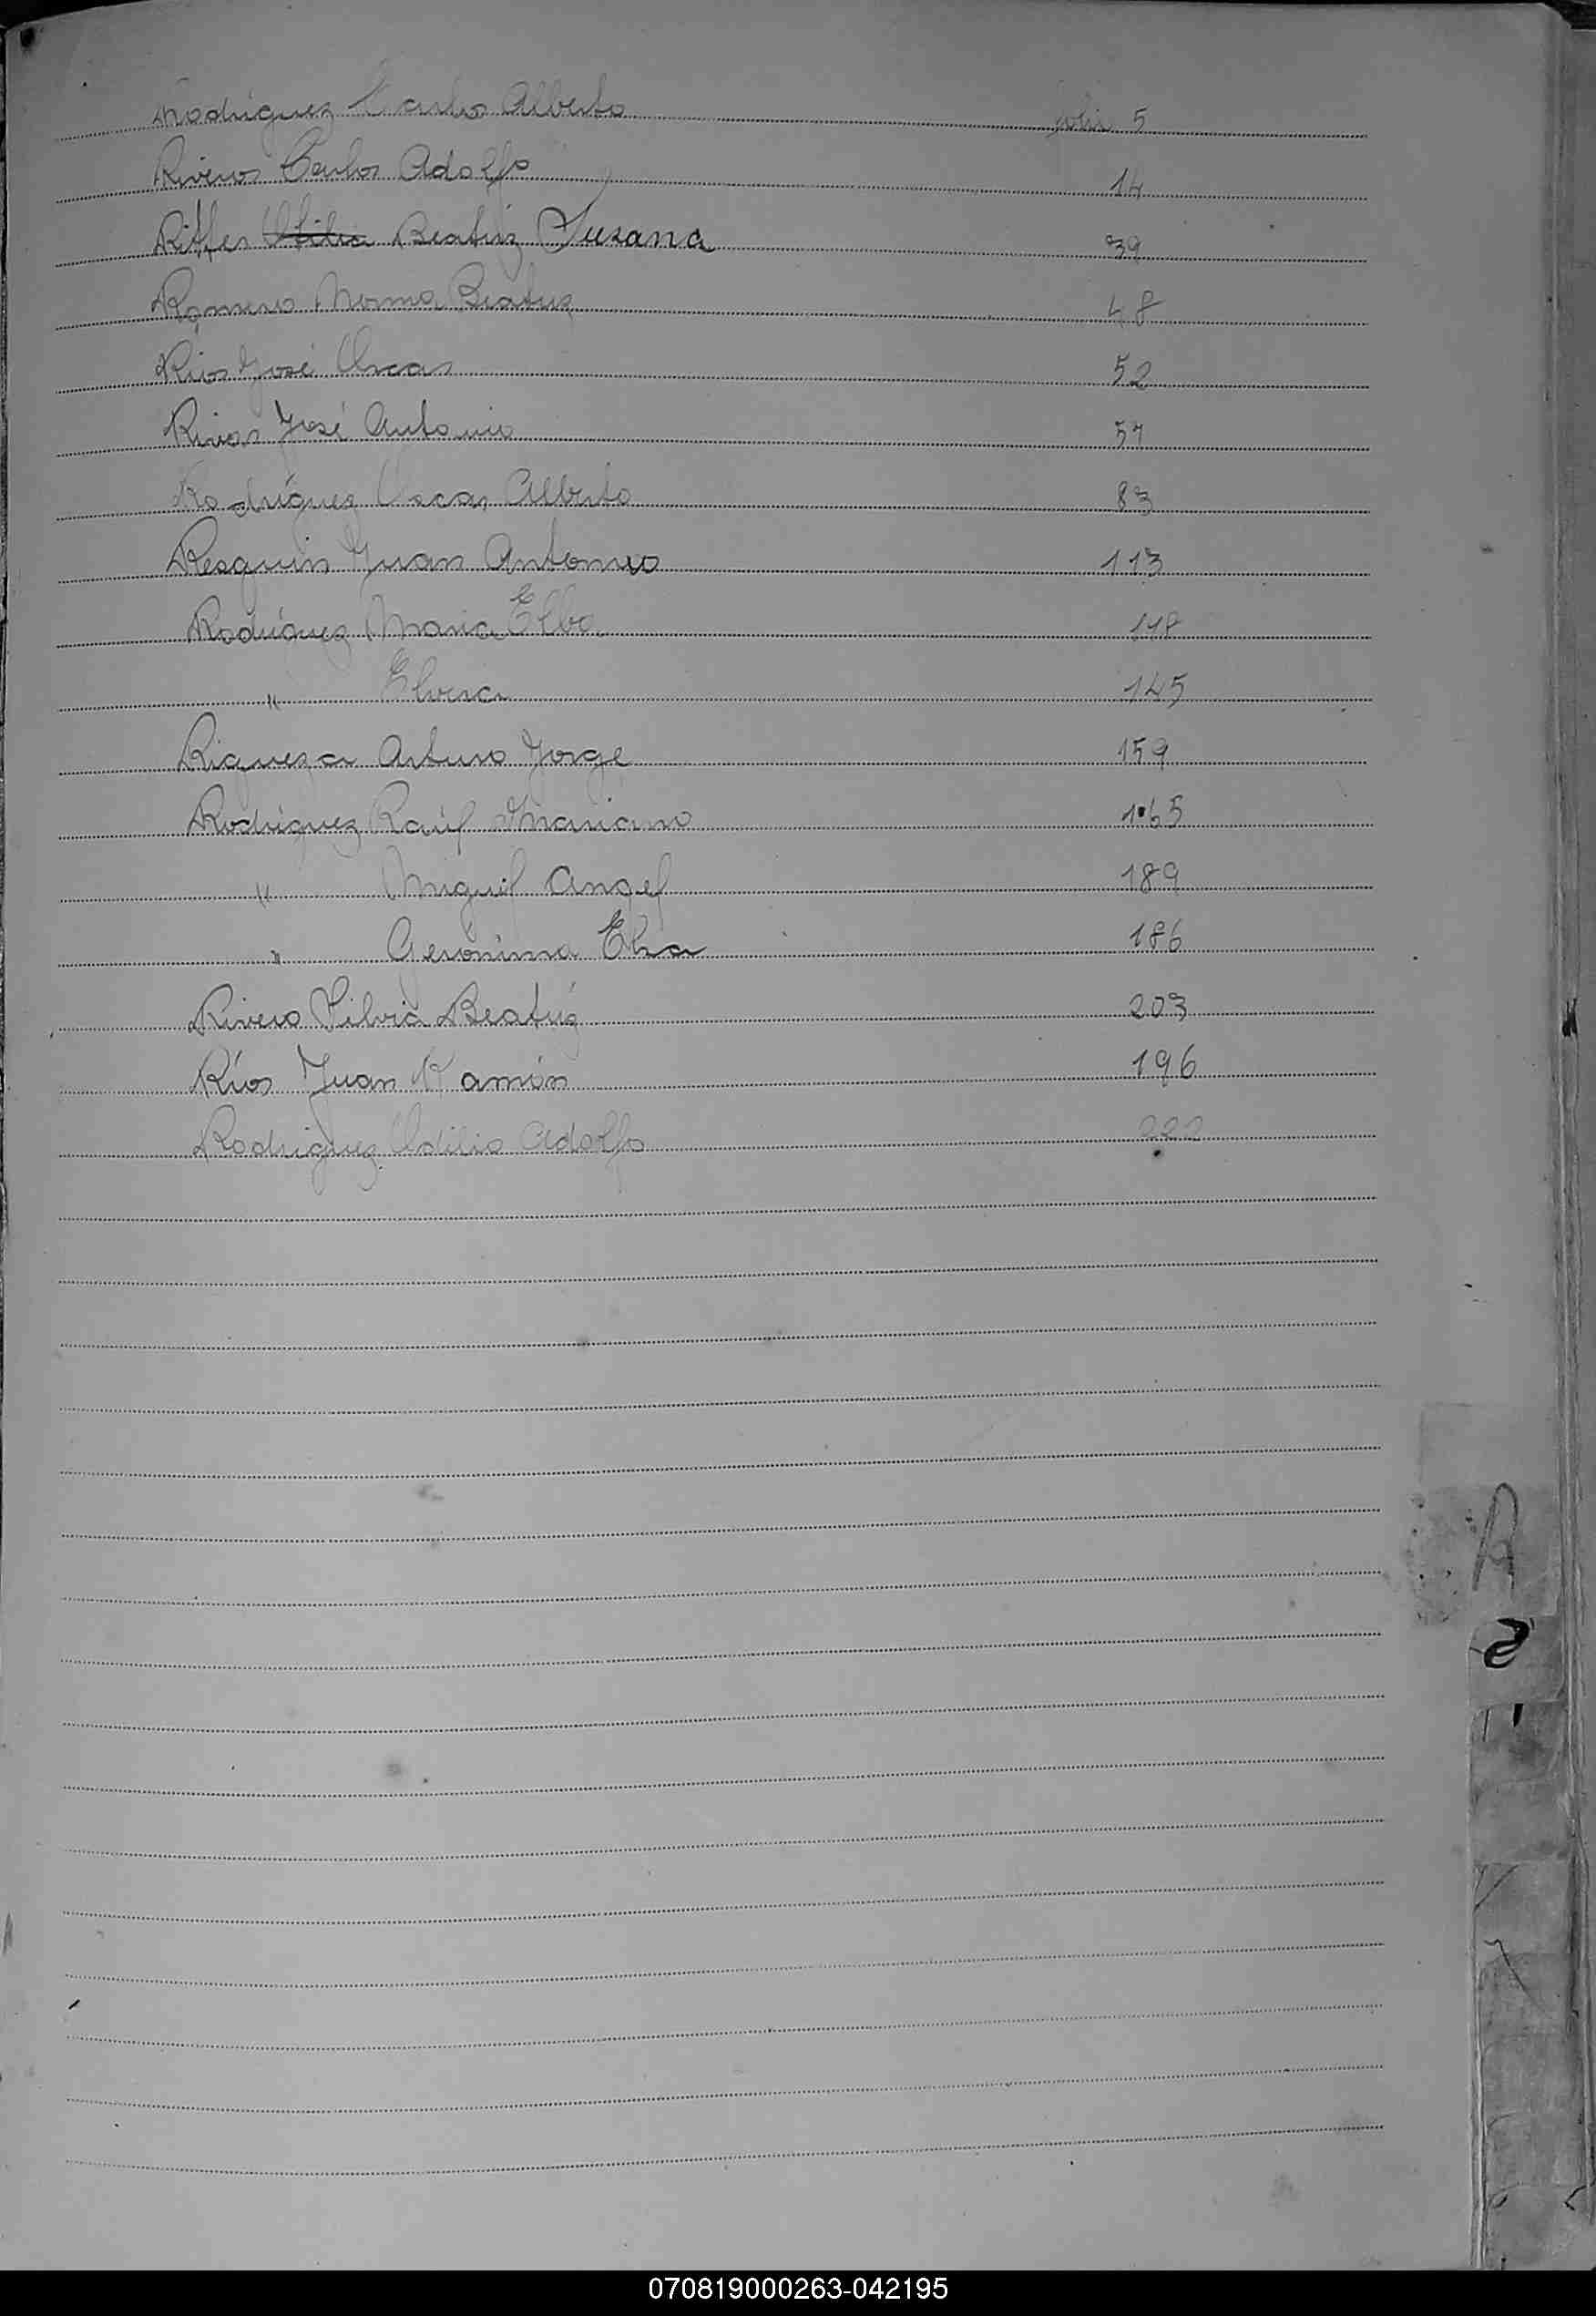 Rodriguez Carlos Alberto folio 5
Riveros Carlos Adolfo 14
Ritter Otilia Beatriz Susana 39
Romero Norma Beatriz 48
Rios José Oscar 52
Rivas José Antonio 57
Rodríguez Oscar Alberto 83
Resquin Juan Antonio 113
Rodríguez Maria Elba 118
" Elvira 145
Riqueza Arturo Jorge 159
Rodriguez Raúl Mariano 165
" Miguel Angel 189
" Geronima Elsa 186
Rivero Silvia Beatríz 203
Ríos Juan Ramón 196
Rodriguez Odilio Adolfo 222
R
S
070819000263-042195